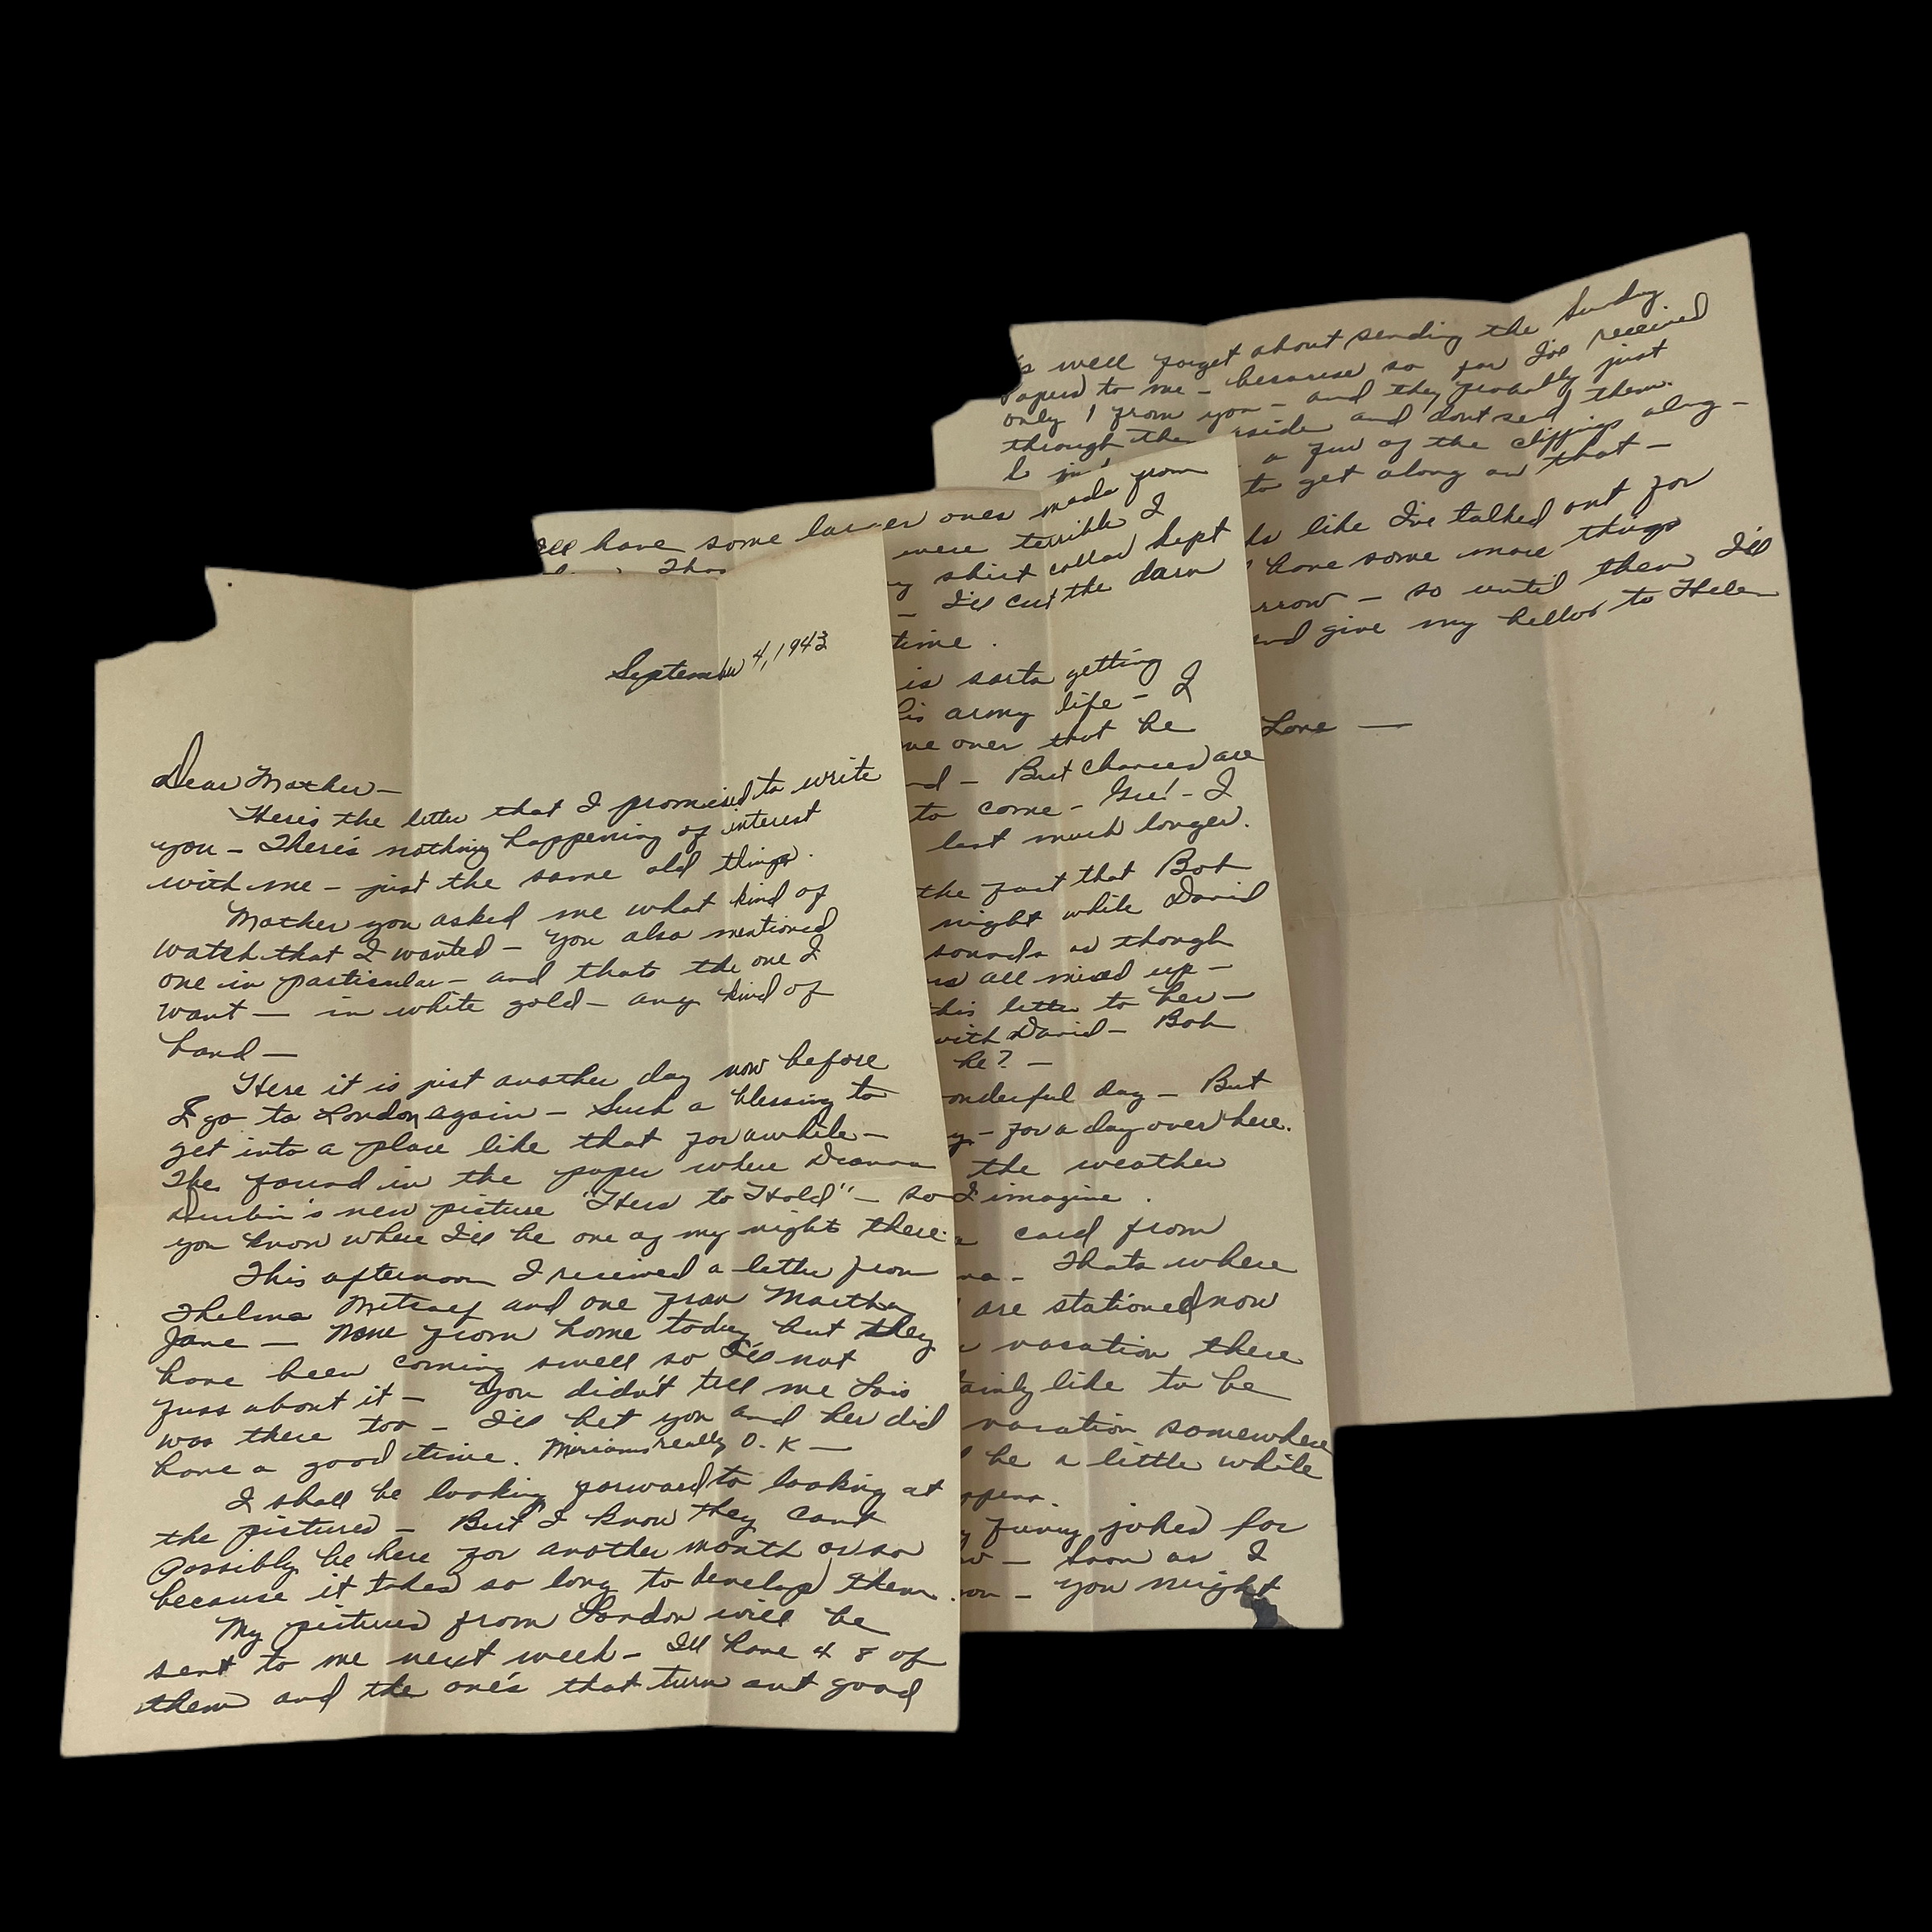 September 4, 1943
Dear Mother-
Here's the letter that I promised to write
you - There's nothing happening of interest
with me - just the same old things.
Mother you asked me what kind of
watch that I wanted - you also mentioned
one in particular - and thats the one I
want - in white gold - any kind of
band -
Here it is just another day now before
I go to London again - Such a blessing to
get into a place like that for awhile -
I've found in the paper where Deanna
Durbin's new picture "Hers to Hold" - so
you know where I'll be one of my night there.
This afternoon I received a letter from
Thelma Metcalf and one from Martha
Jane - None from home today but they
have been coming swell so I'll not
fuss about it - You didn't tell me Lois
was there too - I'll bet you and her did
have a good time. Miriams really O.K -
I shall be looking forward to looking at
the pictures - But I know they cant
possibly be here for another month or so
because it takes so long to develop them.
My pictures from London will be
sent to me next week - I'll have 4 8 of
them and the one's that turn out good
I'll have some larger ones made from
were terrible I
shirt collar kept
- I'll cut the darn
time.
is sorta getting
army life - I
me over that he
- But chances are
to come - Gee! - I
last much longer.
the fact that Bob
night while David
sounds as though
all mixed up -
this letter to her -
with David - Bob
he? -
wonderful day - But
- for a day over here.
the weather
I imagine.
card from
- Thats where
are stationed now
vacation there
like to be
vacation somewhere
be a little while
funny jokes for
- Soon as I
- you might
as well forget about sending the Sunday
papers to me - because so far I've received
only 1 from you - and they probably just
through them aside and dont send them.
a few of the clippings along -
to get along on that -
like I've talked out for
have some more things
- so until then I'll
and give my hellos to Helen
Love -